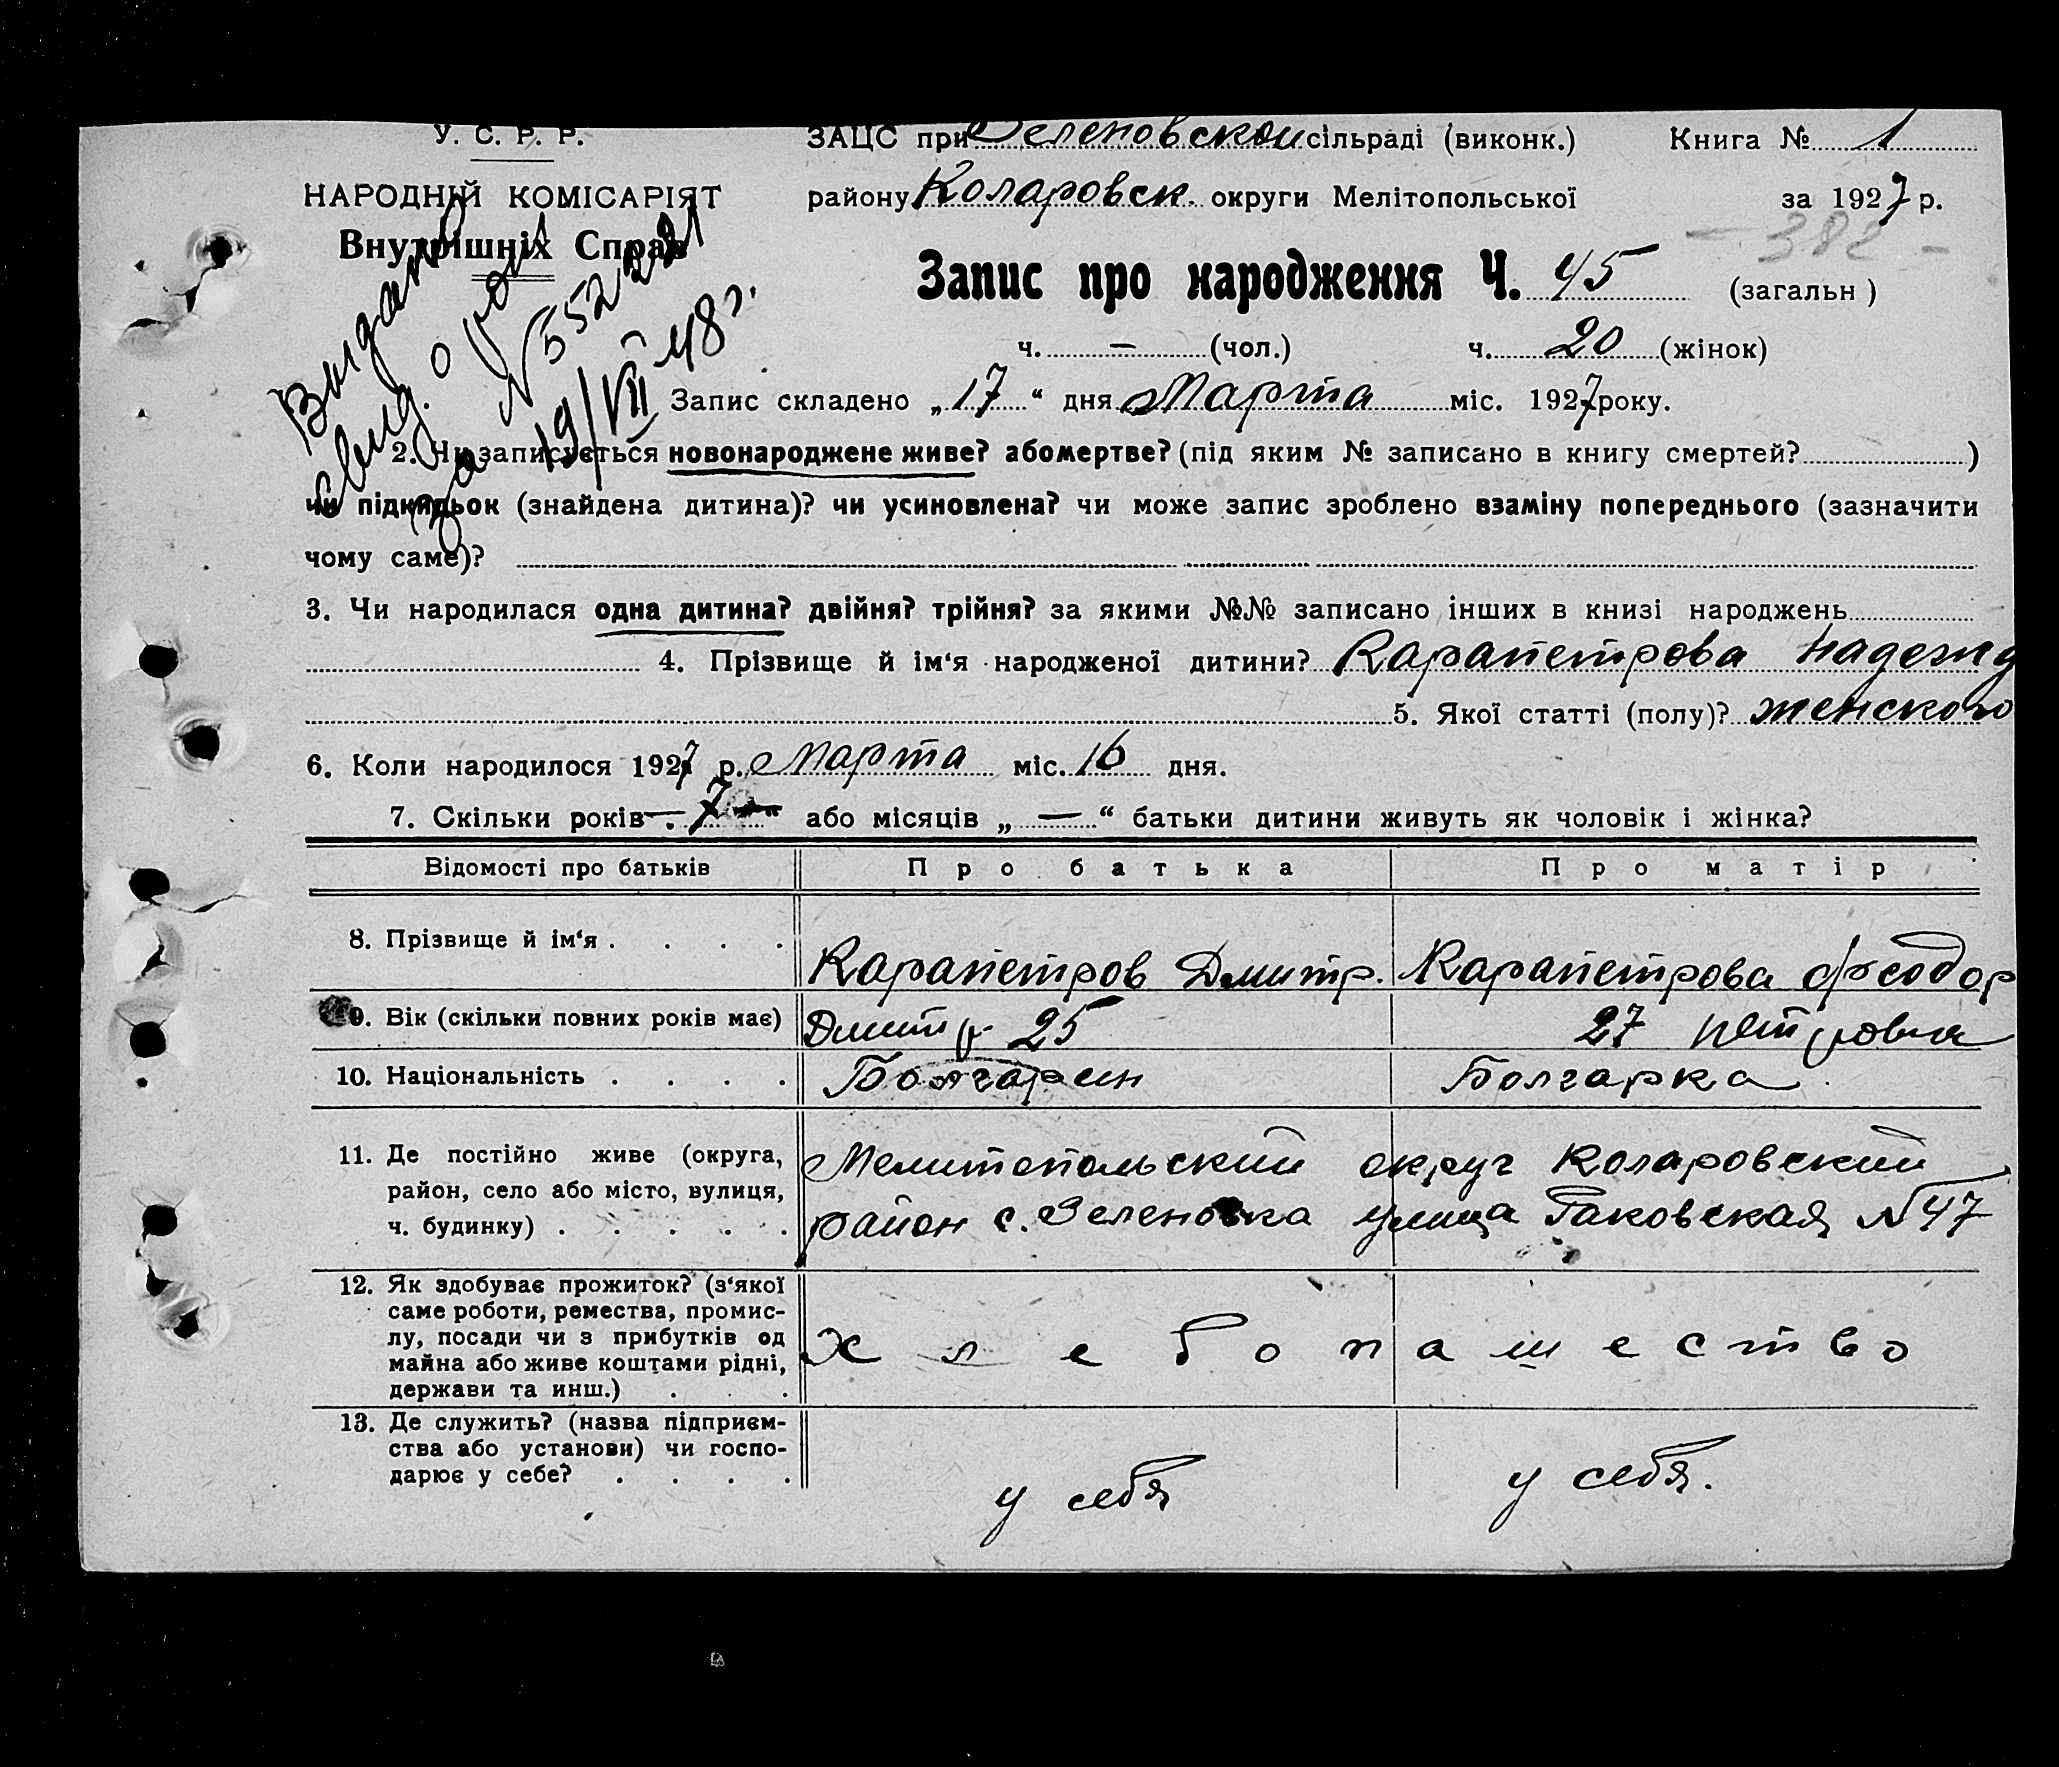 У. С. Р. Р.
НАРОДНІЙ КОМІСАРІЯТ
Внутрішніх Справ
ЗАЦС при Зеленовской сільраді (виконк.) Книга № 1
району Коларовск. округи Мелітопольської за 1927 р.
- 382 -
Запис про народження Ч. 45 (загальн)
ч. — (чол.) ч. 20 (жінок)
Выдано
свид. о рож
за № 552221
19/VIII-48 г.
Запис складено „17“ дня Марта міс. 1927 року.
2. Чи записується новонароджене живе? або мертве? (під яким № записано в книгу смертей? )
чи підкидьок (знайдена дитина)? чи усиновлена? чи може запис зроблено взаміну попереднього (зазначити
чому саме)?
3. Чи народилася одна дитина? двійня? трійня? за якими №№ записано інших в книзі народжень
4. Прізвище й ім‘я народженої дитини? Карапетрова Надежд
5. Якої статті (полу)? женского
6. Коли народилося 1927 р. Марта міс. 16 дня.
7. Скільки років — 7 —“ або місяців „—“ батьки дитини живуть як чоловік і жінка?
Відомості про батьків Про батька Про матір
8. Прізвище й ім‘я . . . . Карапетров Дмитр. Карапетрова Феодор
9. Вік (скільки повних років має) Дмитр 25 27 Петровна
10. Національність . . . . Болгарин Болгарка
11. Де постійно живе (округа, Мелитопольский округ Коларовский
район, село або місто, вулиця, район с. Зеленовка улица Раковская № 47
ч. будинку) . . . . .
12. Як здобуває прожиток? (з‘якої
саме роботи, ремества, промис-
лу, посади чи з прибутків од
майна або живе коштами рідні,
держави та инш.) . . .
хлебопашество
13. Де служить? (назва підприєм-
ства або установи) чи госпо-
дарює у себе? . . . .
у себя у себя.